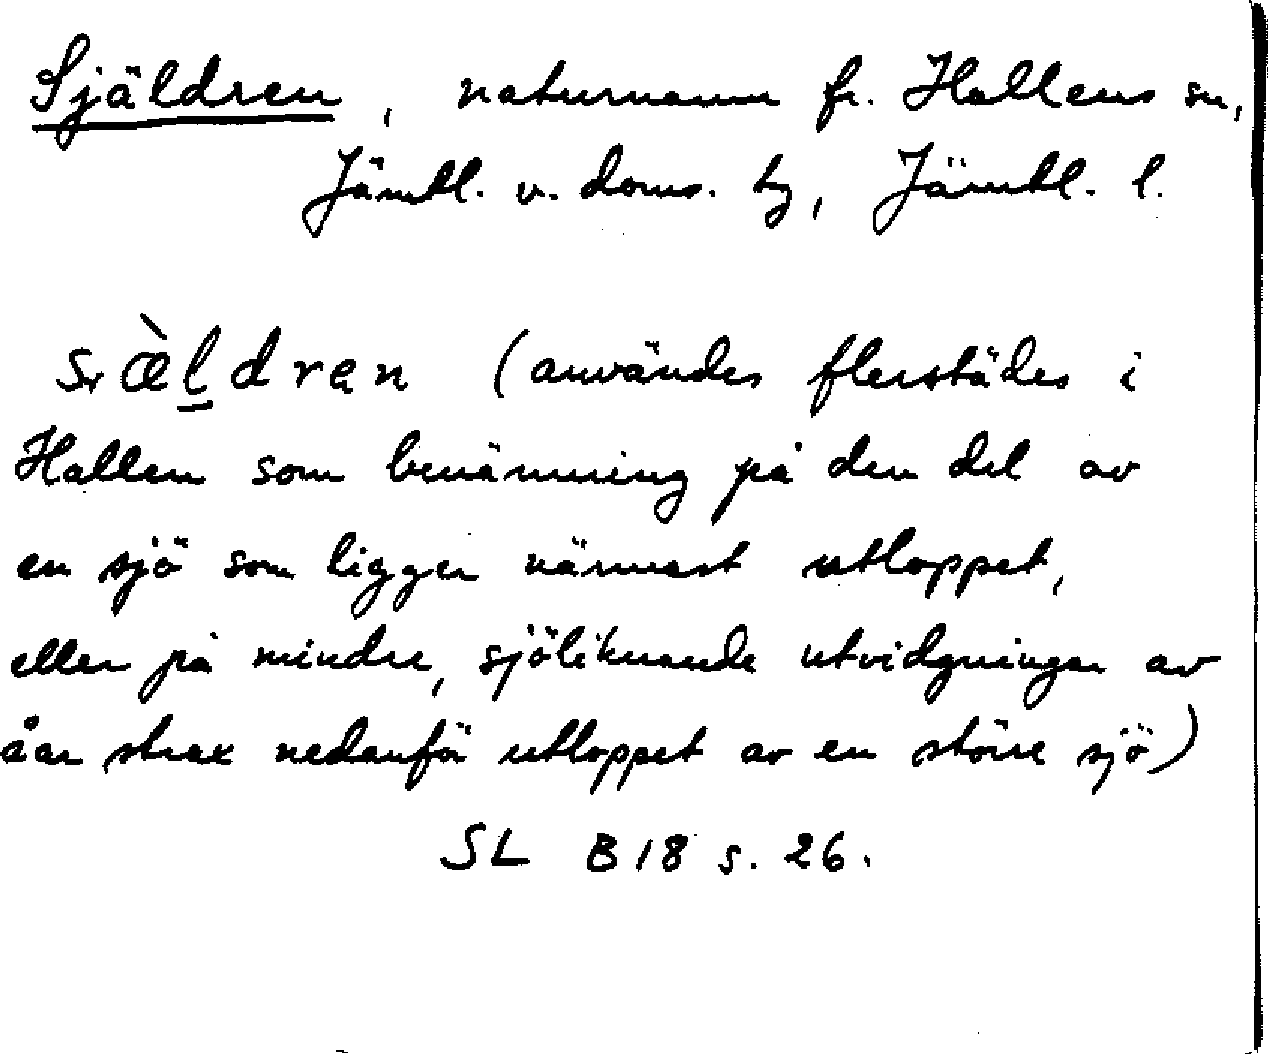 Själdren, naturnamn fr. Hallens sn,
Jämtl. v. doms. tg, Jämtl. l.
sæ̀ldren (användes flerstädes i
Hallen som benämning på den del av
en sjö som ligger närmast utloppet,
eller på mindre, sjöliknande utvidgningar av
åar strax nedanför utloppet av en större sjö)
SL B 18 s. 26.